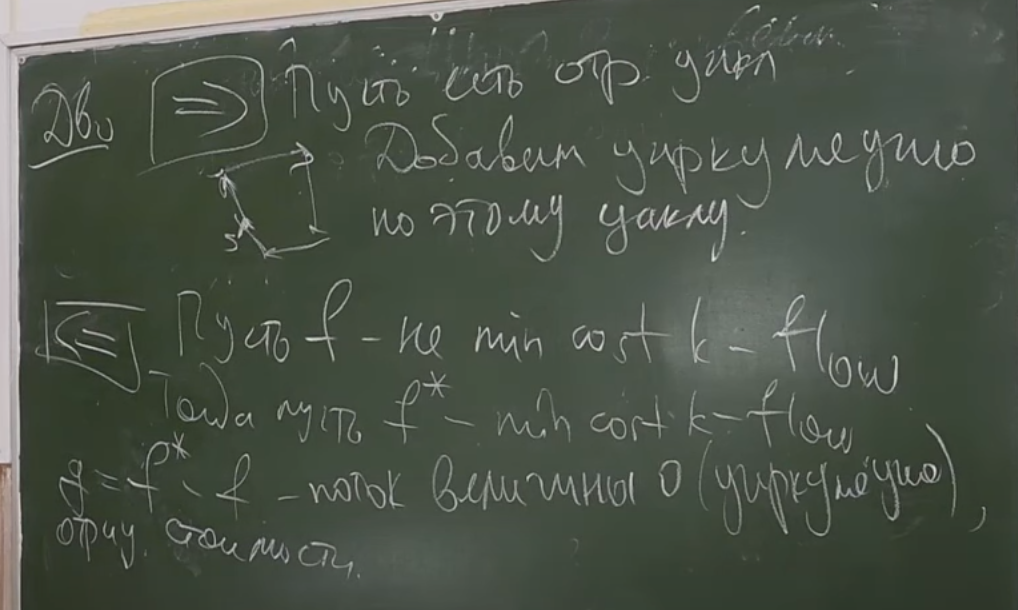 Д-во ⇒ Пусть есть отр. цикл
Добавим циркуляцию
по этому циклу.
⇐ Пусть f - не min cost k-flow
Тогда пусть f* - min cost k-flow
g = f* - f - поток величины 0 (циркуляцию),
отриц. стоимости.